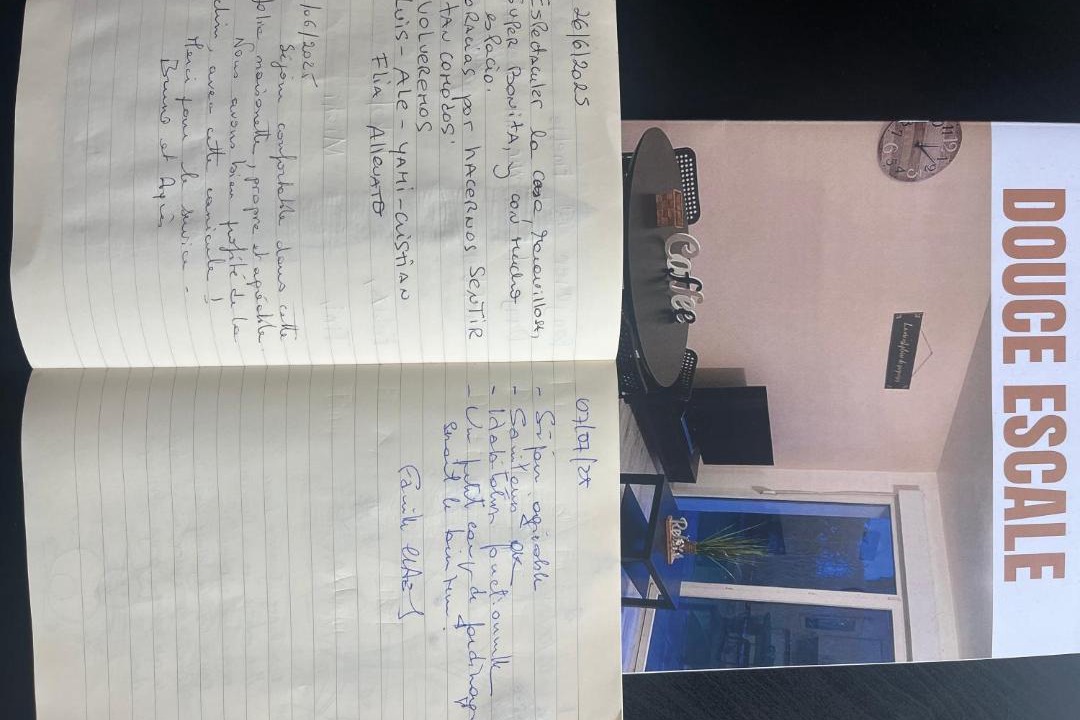 26/6/2025
Espectacular la casa, Maravillosa,
super Bonita, y con mucho
espacio.
GRACIAS por HACERNOS SENTIR
TAN COMODOS
VOLVEREMOS
LUIS-ALE-YAMI-CRISTIAN
Flia
/06/2025
Séjour confortable dans cette
jolie maisonnette, propre et agréable
Nous avons bien profité de la
, avec cette canicule !
Merci pour le service -
Bruno et
07/07/25
- Séjour agréable
- Sanitaire OK
- fonctionnelle
- Un petit coup de jardinage
serait le bienvenu.
Famille
DOUCE ESCALE
Coffee
Relax